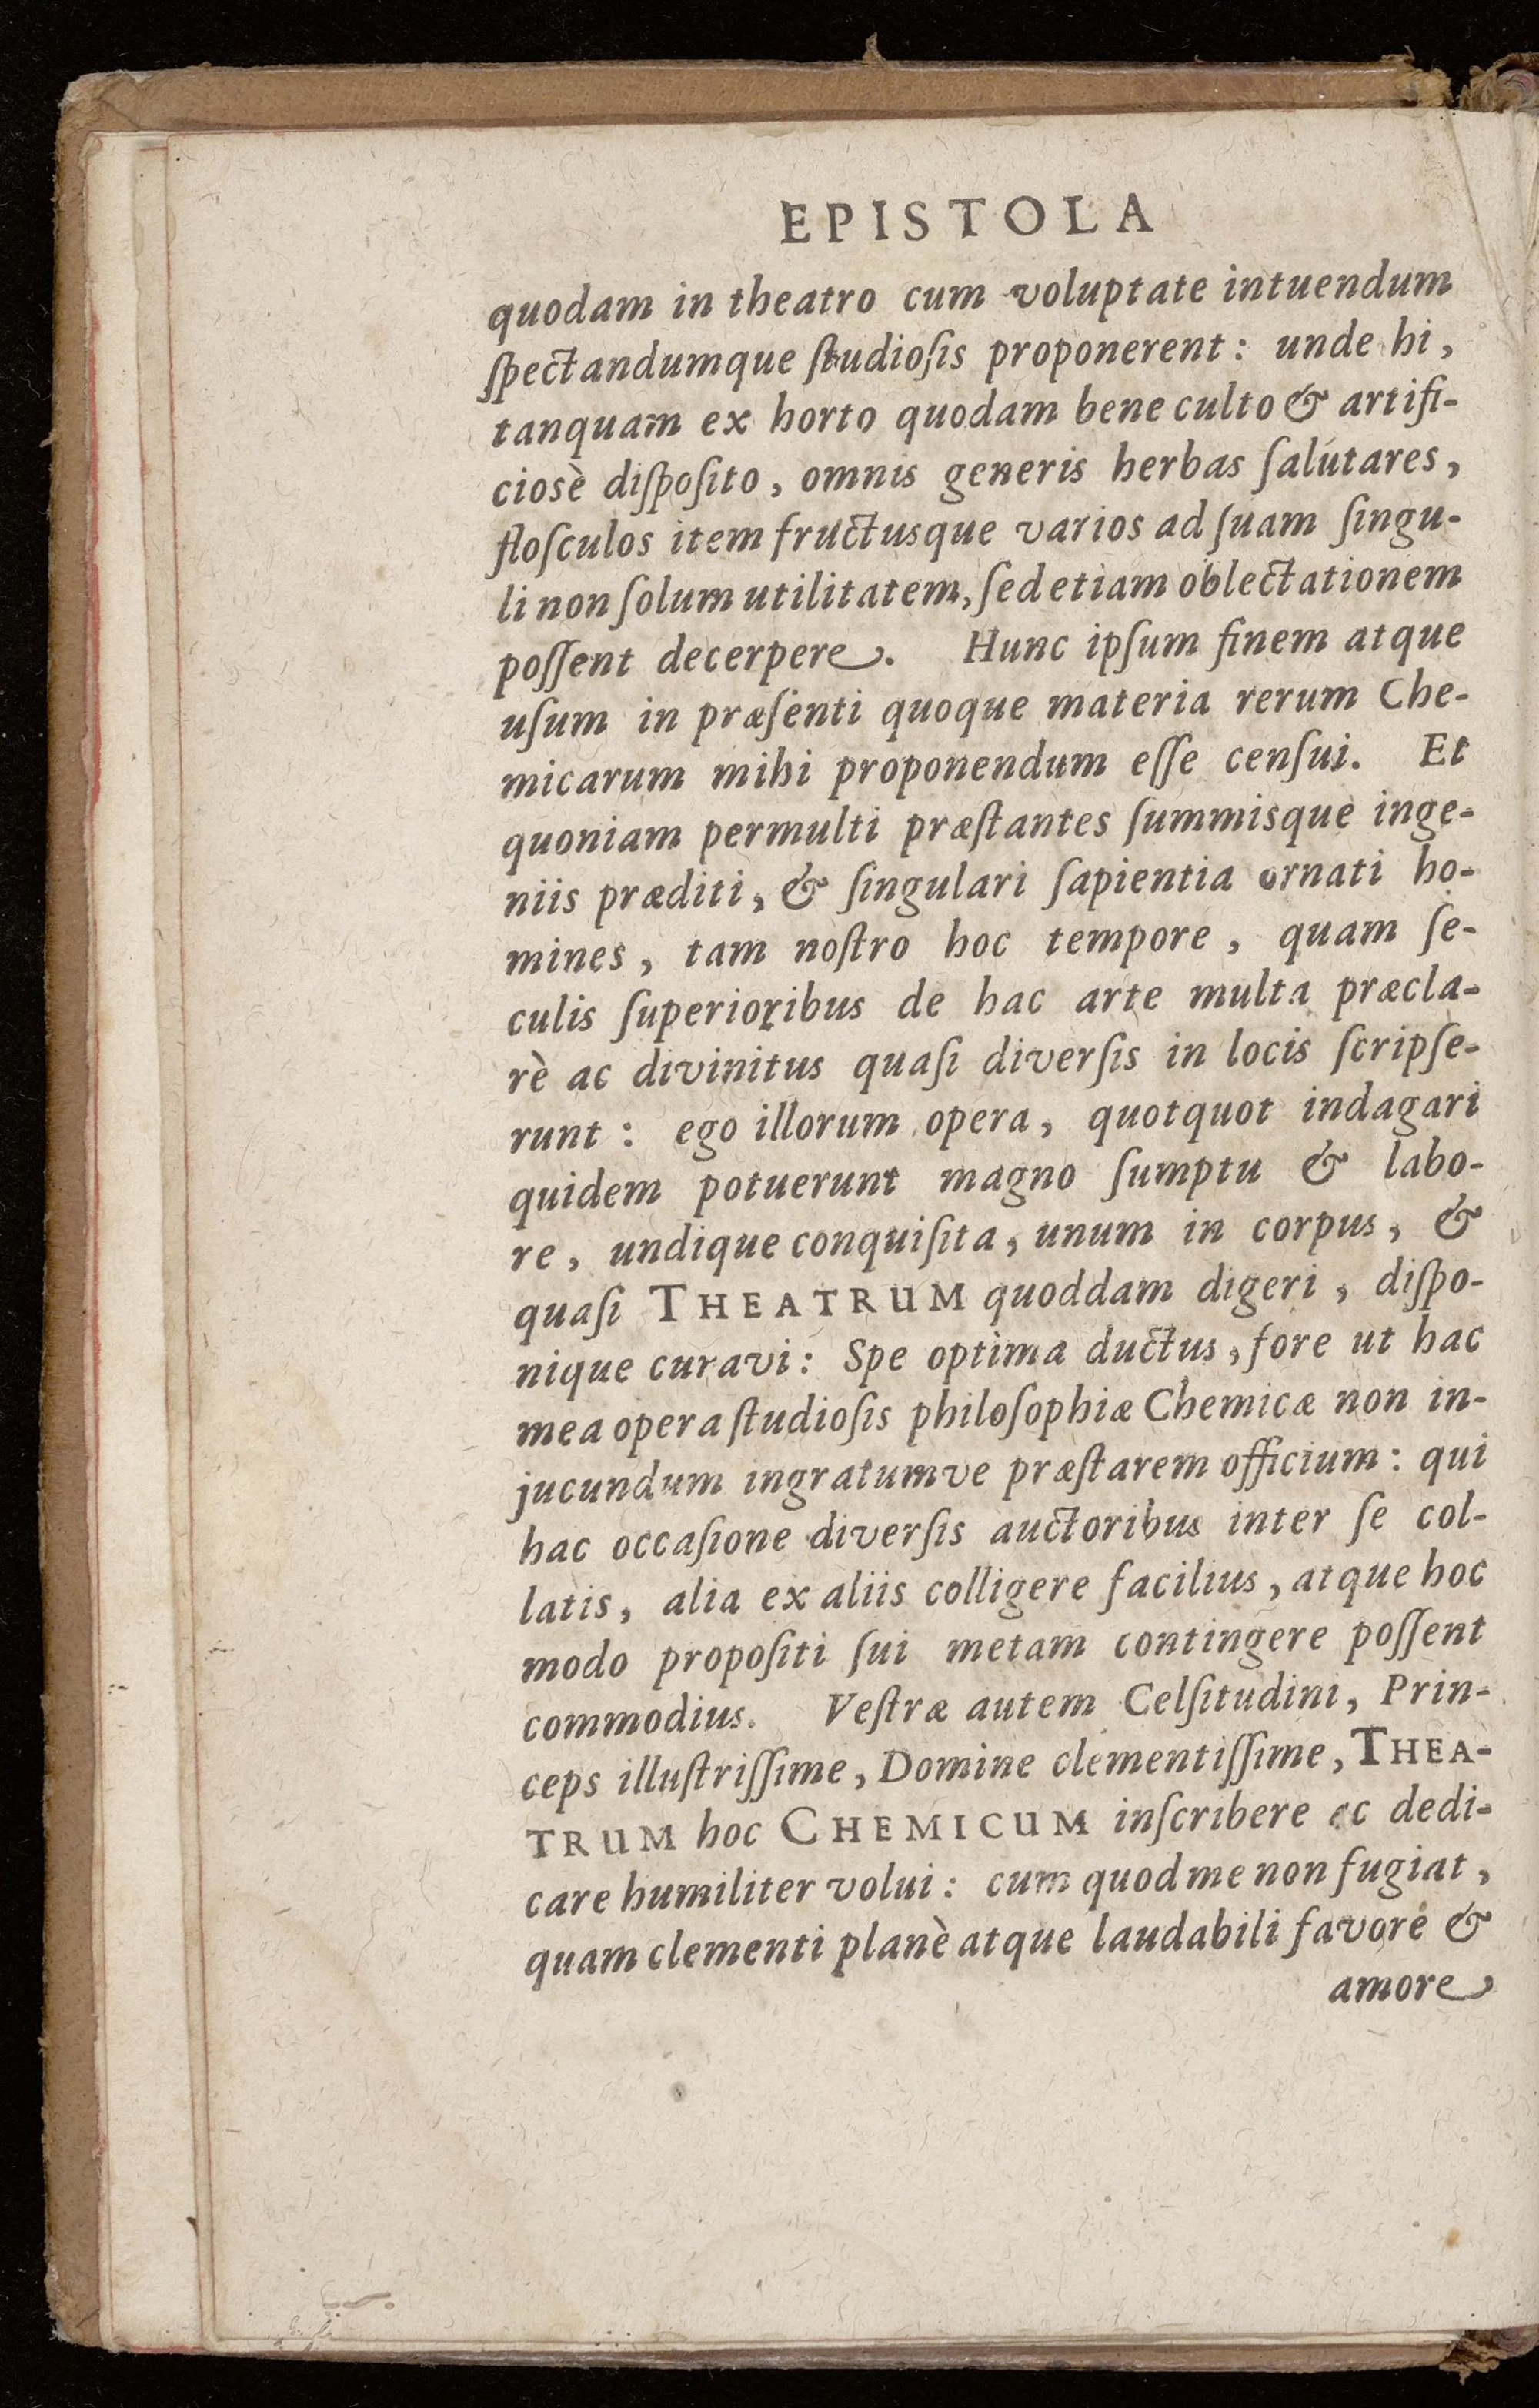 EPISTOLA
quodam in theatro cum voluptate intuendum
ſpectandumque ſtudioſis proponerent: unde hi,
tanquam ex horto quodam bene culto & artifi-
ciosè diſpoſito, omnis generis herbas ſalutares,
floſculos item fructusque varios ad ſuam ſingu-
li non ſolum utilitatem, ſed etiam oblectationem
poſſent decerpere. Hunc ipſum finem atque
uſum in præſenti quoque materia rerum Che-
micarum mihi proponendum eſſe cenſui. Et
quoniam permulti præſtantes ſummisque inge-
niis præditi, & ſingulari ſapientia ornati ho-
mines, tam noſtro hoc tempore, quam ſe-
culis ſuperioribus de hac arte multa præcla-
rè ac divinitus quaſi diverſis in locis ſcripſe-
runt: ego illorum opera, quotquot indagari
quidem potuerunt magno ſumptu & labo-
re, undique conquiſita, unum in corpus, &
quaſi THEATRUM quoddam digeri, diſpo-
nique curavi: Spe optima ductus, fore ut hac
mea opera ſtudioſis philoſophiæ Chemicæ non in-
jucundum ingratumve præſtarem officium: qui
hac occaſione diverſis auctoribus inter ſe col-
latis, alia ex aliis colligere facilius, atque hoc
modo propoſiti ſui metam contingere poſſent
commodius. Veſtræ autem Celſitudini, Prin-
ceps illuſtriſſime, Domine clementiſſime, THEA-
TRUM hoc CHEMICUM inſcribere ac dedi-
care humiliter volui: cum quod me non fugiat,
quam clementi planè atque laudabili favore &
amore